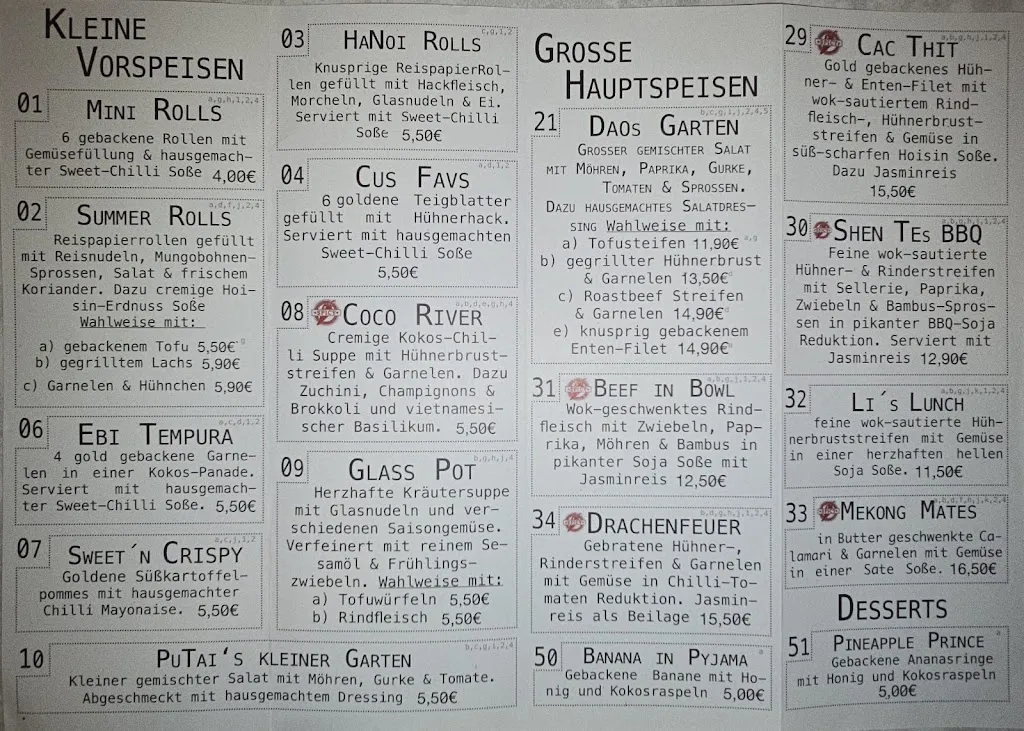 KLEINE
VORSPEISEN
01 MINI ROLLS a,g,h,1,2,4
6 gebackene Rollen mit
Gemüsefüllung & hausgemach-
ter Sweet-Chilli Soße 4,00€
02 SUMMER ROLLS a,d,f,j,2,4
Reispapierrollen gefüllt
mit Reisnudeln, Mungobohnen-
Sprossen, Salat & frischem
Koriander. Dazu cremige Hoi-
sin-Erdnuss Soße
Wahlweise mit:
a) gebackenem Tofu 5,50€ g
b) gegrilltem Lachs 5,90€
c) Garnelen & Hühnchen 5,90€
06 EBI TEMPURA a,c,d,1,2
4 gold gebackene Garne-
len in einer Kokos-Panade.
Serviert mit hausgemach-
ter Sweet-Chilli Soße. 5,50€
07 SWEET´N CRISPY a,c,j,1,2
Goldene Süßkartoffel-
pommes mit hausgemachter
Chilli Mayonaise. 5,50€
03 HANOI ROLLS c,g,1,2
Knusprige ReispapierRol-
len gefüllt mit Hackfleisch,
Morcheln, Glasnudeln & Ei.
Serviert mit Sweet-Chilli
Soße 5,50€
04 CUS FAVS a,d,1,2
6 goldene Teigblatter
gefüllt mit Hühnerhack.
Serviert mit hausgemachten
Sweet-Chilli Soße
5,50€
08 COCO RIVER a,b,d,e,g,h,4
Cremige Kokos-Chil-
li Suppe mit Hühnerbrust-
streifen & Garnelen. Dazu
Zuchini, Champignons &
Brokkoli und vietnamesi-
scher Basilikum. 5,50€
09 GLASS POT b,g,h,j,4
Herzhafte Kräutersuppe
mit Glasnudeln und ver-
schiedenen Saisongemüse.
Verfeinert mit reinem Se-
samöl & Frühlings-
zwiebeln. Wahlweise mit:
a) Tofuwürfeln 5,50€
b) Rindfleisch 5,50€
10 PUTAI'S KLEINER GARTEN b,c,g,i,2,4
Kleiner gemischter Salat mit Möhren, Gurke & Tomate.
Abgeschmeckt mit hausgemachtem Dressing 5,50€
GROSSE
HAUPTSPEISEN
21 DAOS GARTEN b,c,g,i,j,2,4,5
GROSSER GEMISCHTER SALAT
MIT MÖHREN, PAPRIKA, GURKE,
TOMATEN & SPROSSEN.
DAZU HAUSGEMACHTES SALATDRES-
SING Wahlweise mit:
a) Tofusteifen 11,90€ a,g
b) gegrillter Hühnerbrust
& Garnelen 13,50€
c) Roastbeef Streifen
& Garnelen 14,90€
e) knusprig gebackenem
Enten-Filet 14,90€
31 BEEF IN BOWL a,b,g,j,1,2,4
Wok-geschwenktes Rind-
fleisch mit Zwiebeln, Pap-
rika, Möhren & Bambus in
pikanter Soja Soße mit
Jasminreis 12,50€
34 DRACHENFEUER b,d,g,h,j,1,2,4
Gebratene Hühner-,
Rinderstreifen & Garnelen
mit Gemüse in Chilli-To-
maten Reduktion. Jasmin-
reis als Beilage 15,50€
50 BANANA IN PYJAMA a
Gebackene Banane mit Ho-
nig und Kokosraspeln 5,00€
29 CAC THIT a,b,g,h,j,1,2,4
Gold gebackenes Hüh-
ner- & Enten-Filet mit
wok-sautiertem Rind-
fleisch-, Hühnerbrust-
streifen & Gemüse in
süß-scharfen Hoisin Soße.
Dazu Jasminreis
15,50€
30 SHEN TES BBQ a,b,g,h,j,1,2,4
Feine wok-sautierte
Hühner- & Rinderstreifen
mit Sellerie, Paprika,
Zwiebeln & Bambus-Spros-
sen in pikanter BBQ-Soja
Reduktion. Serviert mit
Jasminreis 12,90€
32 LI´S LUNCH a,b,g,j,k,1,2,4
feine wok-sautierte Hüh-
nerbruststreifen mit Gemüse
in einer herzhaften hellen
Soja Soße. 11,50€
33 MEKONG MATES a,b,d,f,h,j,k,2,4
in Butter geschwenkte Ca-
lamari & Garnelen mit Gemüse
in einer Sate Soße. 16,50€
DESSERTS
51 PINEAPPLE PRINCE a
Gebackene Ananasringe
mit Honig und Kokosraspeln
5,00€